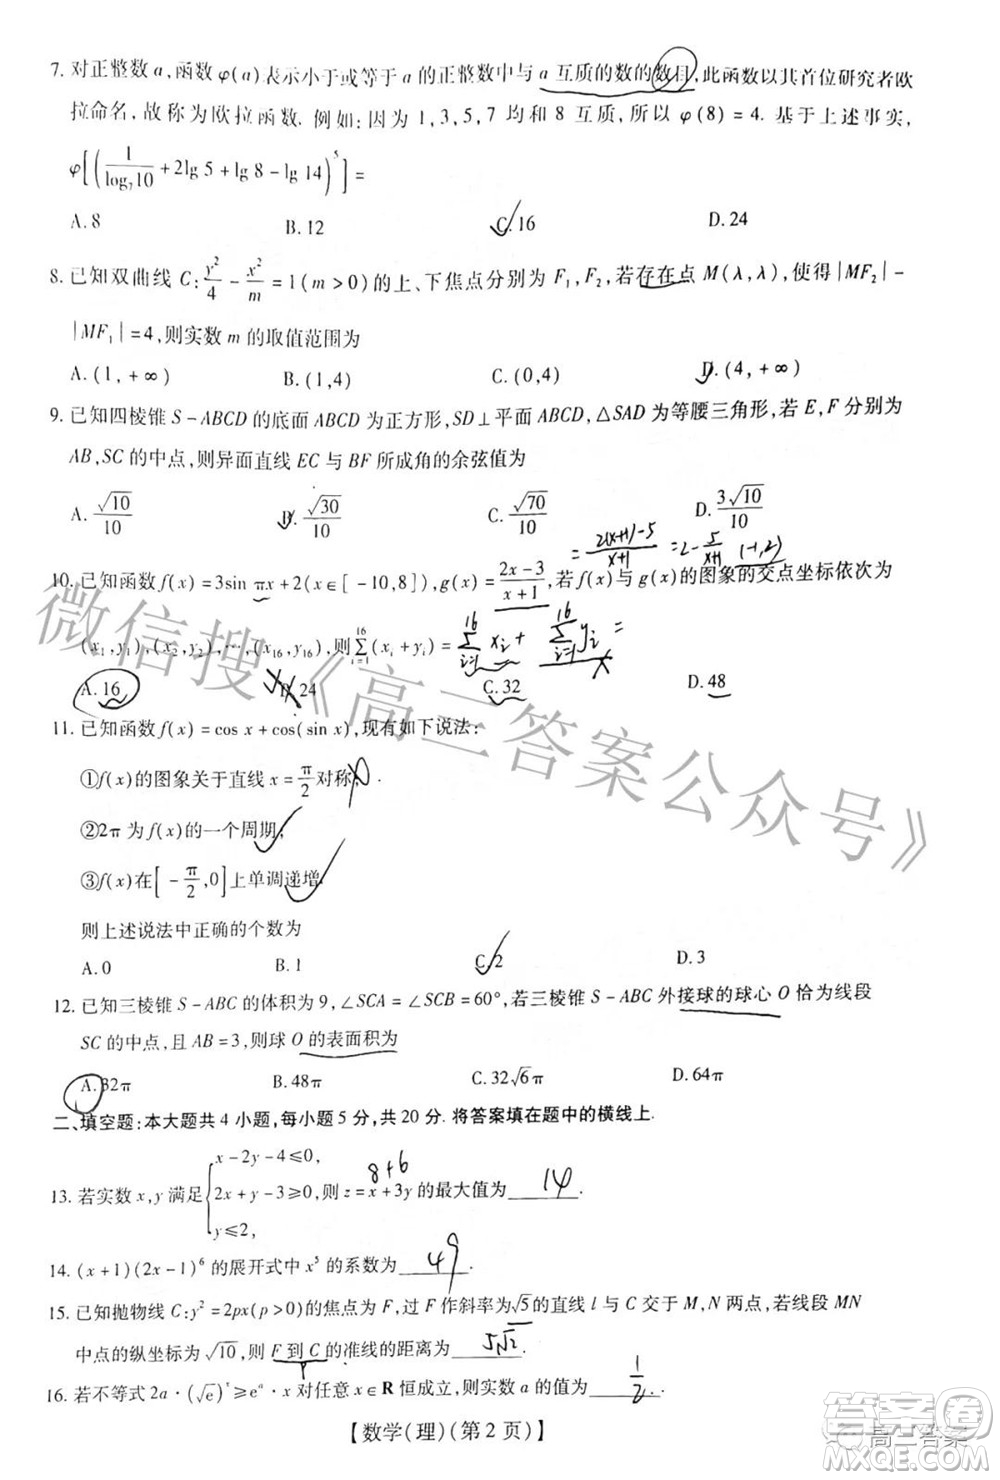 7. 对正整数 a,函数 φ(a)表示小于或等于 a 的正整数中与 a 互质的数的数目,此函数以其首位研究者欧
拉命名,故称为欧拉函数. 例如:因为 1,3,5,7 均和 8 互质,所以 φ(8)=4. 基于上述事实,
φ[(1/log₇10+2lg 5+lg 8-lg 14)⁵]=
A. 8 B. 12 C. 16 D. 24
8. 已知双曲线 C:y²/4-x²/m=1(m>0)的上、下焦点分别为 F₁,F₂,若存在点 M(λ,λ),使得|MF₂|-
|MF₁|=4,则实数 m 的取值范围为
A. (1,+∞) B. (1,4) C. (0,4) D. (4,+∞)
9. 已知四棱锥 S-ABCD 的底面 ABCD 为正方形,SD⊥平面 ABCD,△SAD 为等腰三角形,若 E,F 分别为
AB,SC 的中点,则异面直线 EC 与 BF 所成角的余弦值为
A. √10/10 B. √30/10 C. √70/10 D. 3√10/10
= 2(x+1)-5/x+1 = 2-5/x+1 (-1,2)
10. 已知函数 f(x)=3sin πx+2(x∈[-10,8]),g(x)=2x-3/x+1,若 f(x)与 g(x)的图象的交点坐标依次为
(x₁,y₁),(x₂,y₂),…,(x₁₆,y₁₆),则∑(i=1→16)(xᵢ+yᵢ)= ∑(i=1→16)xᵢ+∑(i=1→16)yᵢ=
A. 16 B. 24 C. 32 D. 48
11. 已知函数 f(x)=cos x+cos(sin x),现有如下说法:
①f(x)的图象关于直线 x=π/2对称;
②2π 为 f(x)的一个周期;
③f(x)在[-π/2,0]上单调递增.
则上述说法中正确的个数为
A. 0 B. 1 C. 2 D. 3
12. 已知三棱锥 S-ABC 的体积为 9,∠SCA=∠SCB=60°,若三棱锥 S-ABC 外接球的球心 O 恰为线段
SC 的中点,且 AB=3,则球 O 的表面积为
A. 32π B. 48π C. 32√6π D. 64π
二、填空题:本大题共 4 小题,每小题 5 分,共 20 分. 将答案填在题中的横线上.
8+6
13. 若实数 x,y 满足{x-2y-4≤0, 2x+y-3≥0, y≤2,则 z=x+3y 的最大值为 14 .
14. (x+1)(2x-1)⁶ 的展开式中 x⁵ 的系数为 48 .
15. 已知抛物线 C:y²=2px(p>0)的焦点为 F,过 F 作斜率为√5的直线 l 与 C 交于 M,N 两点,若线段 MN
中点的纵坐标为√10,则 F 到 C 的准线的距离为 5√2 .
P
16. 若不等式 2a·(√e)ˣ≥eᵃ·x 对任意 x∈R 恒成立,则实数 a 的值为 1/2 .
【数学(理)(第 2 页)】
微信搜《高三答案公众号》
答案圈
高三答案
MXQE.COM